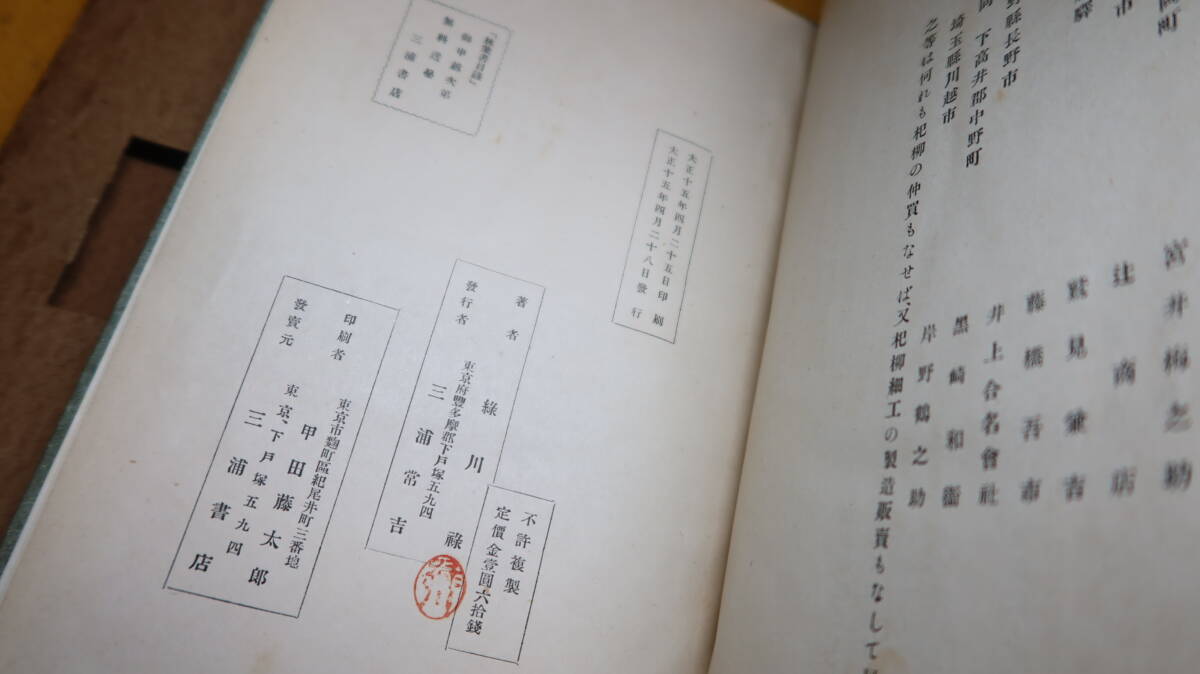 岡町
市
驛
野縣長野市
岡 下高井郡中野町
埼玉縣川越市
宮井梅之助
辻商店
鷲見兼吉
藤橋吾市
井上合名會社
黑崎和衞
岸野鶴之助
之等は何れも杞柳の仲買もなせば、又杞柳細工の製造販賣もなして
大正十五年四月二十五日印刷
大正十五年四月二十八日發行
御申越次第
無料送呈
三浦書店
著者 綠川祿
發行者 東京府豐多摩郡下戶塚五九四
三浦常吉
不許複製
定價金壹圓六拾錢
印刷者 東京市麴町區紀尾井町三番地
甲田藤太郎
發賣元 東京、下戶塚五九四
三浦書店